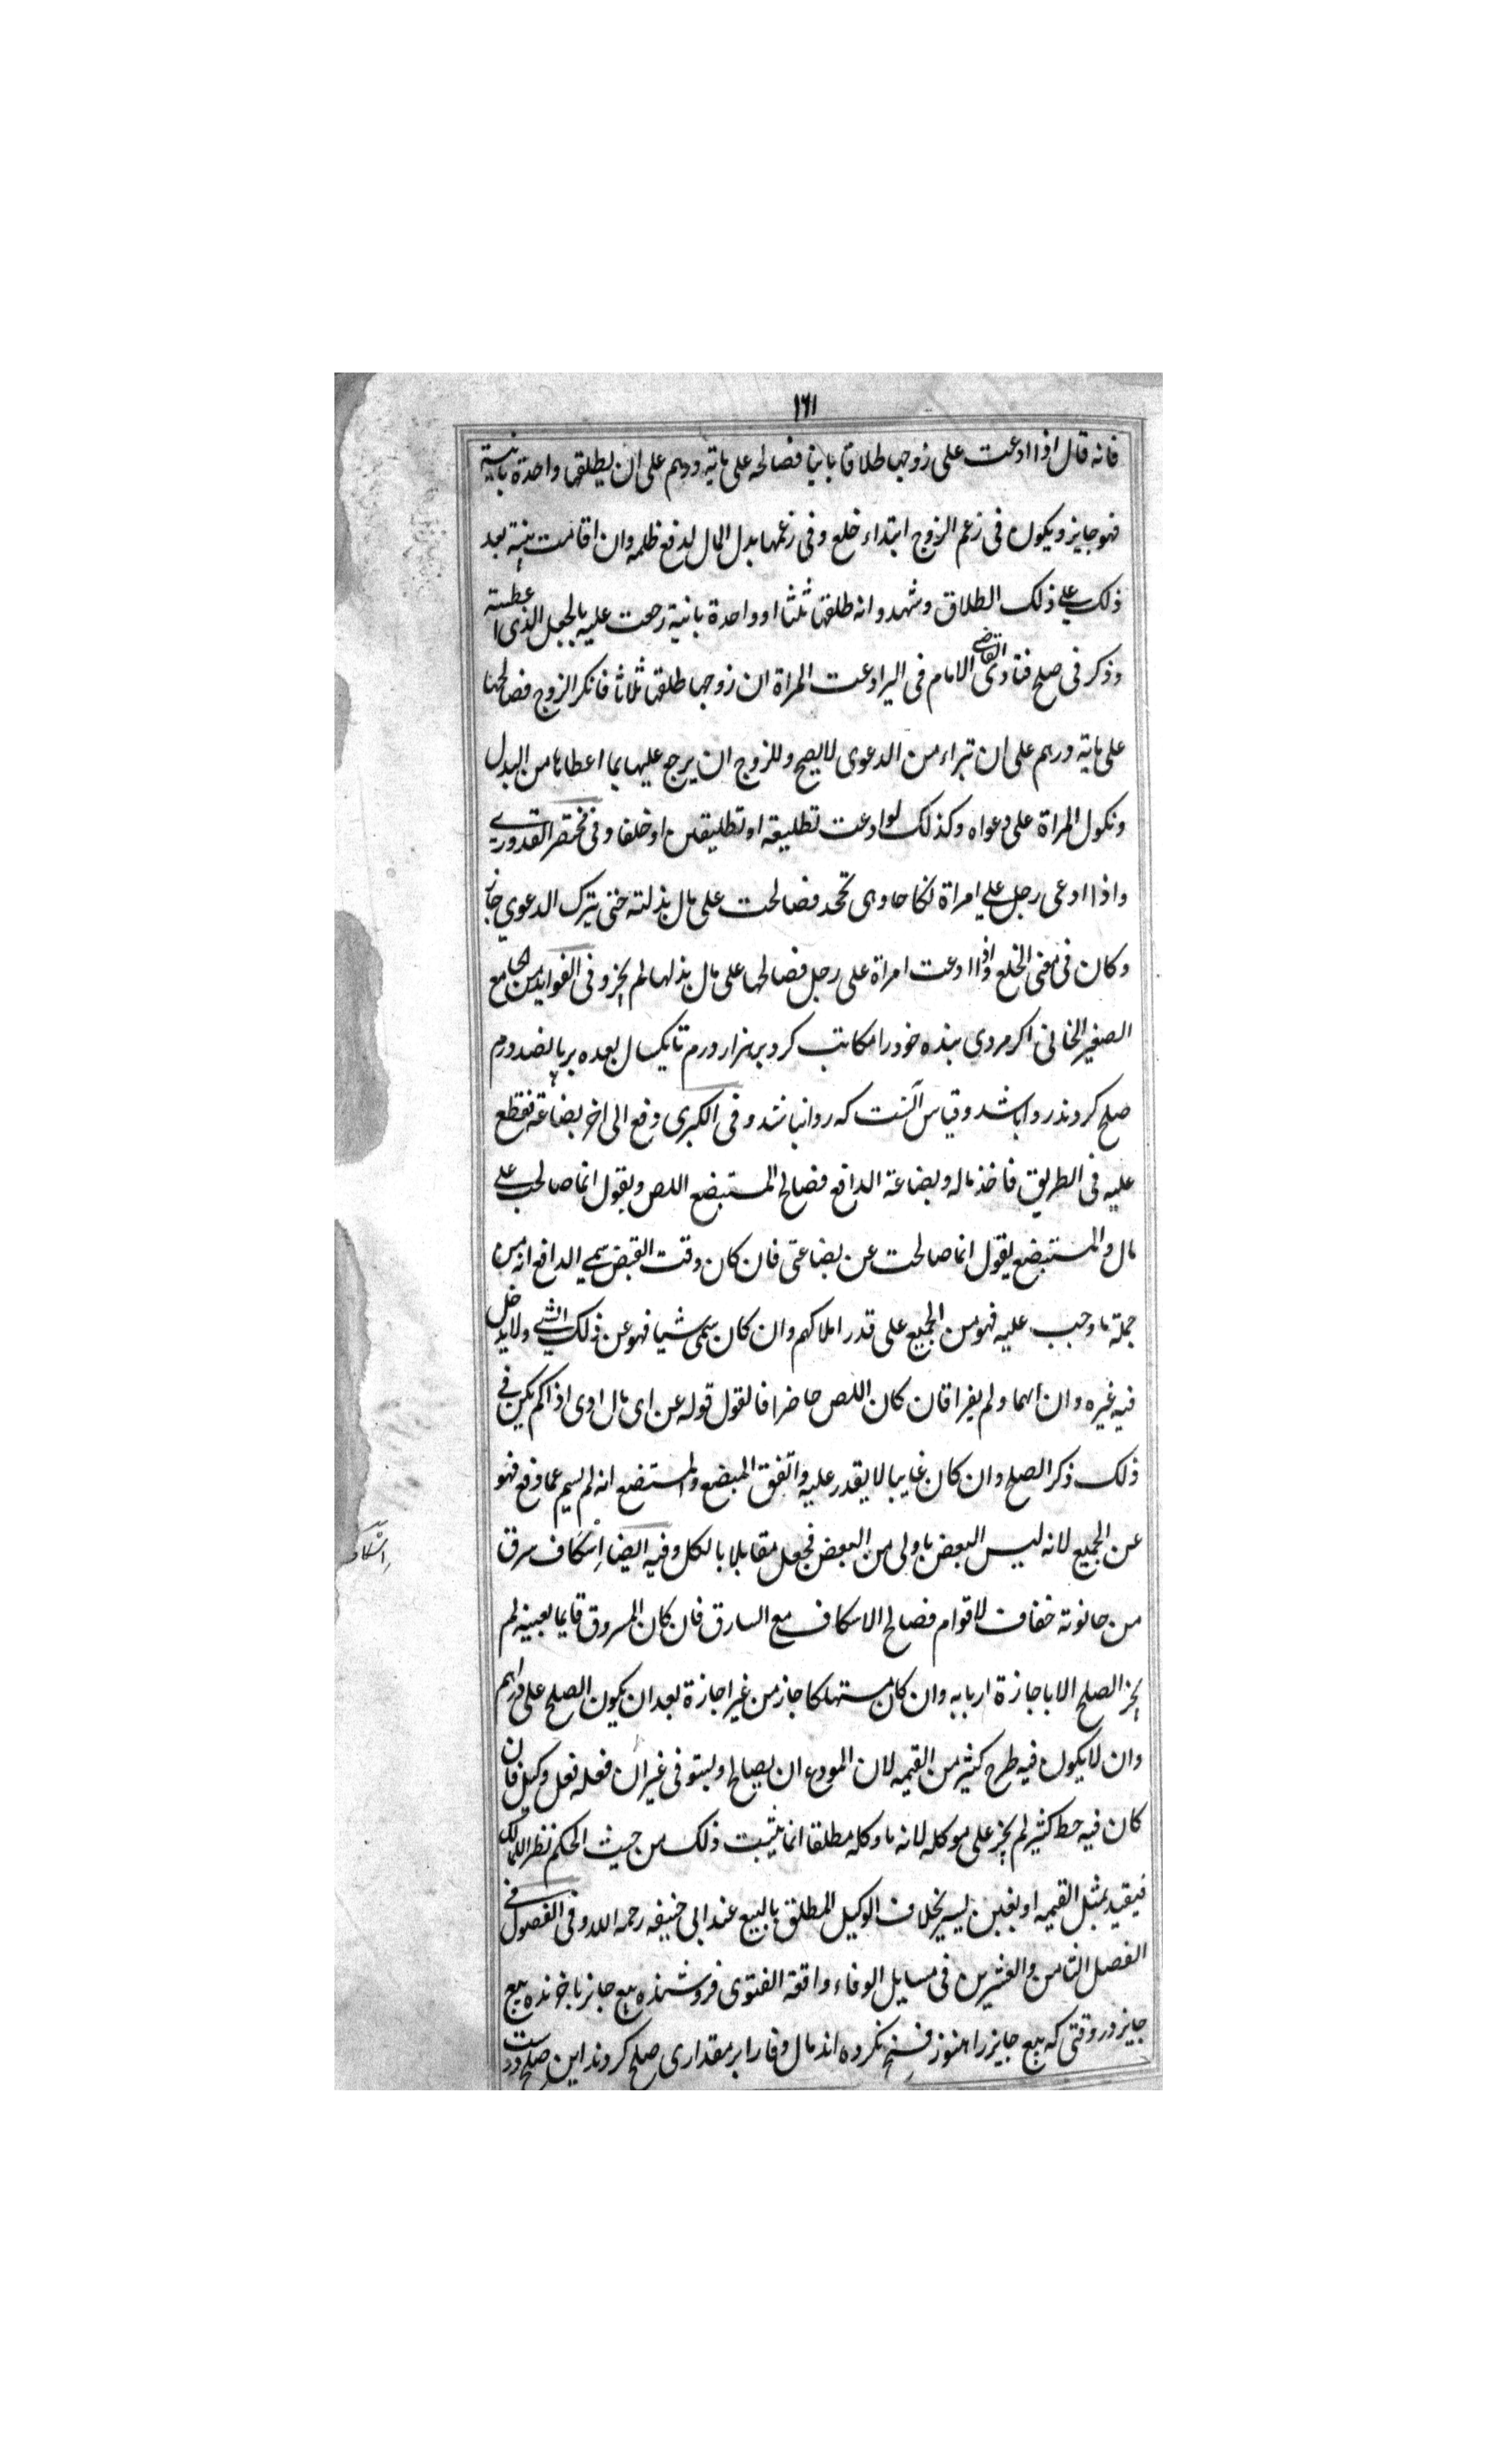 ١٦١
فانه قال اذا ادعت على زوجها طلاقا باينا فصالحه على ماية درهم على ان يطلقها واحدة باينة
فهو جايز ويكون فى زعم الزوج ابتداء خلع وفى زعمها بدل المال لدفع ظلمه وان اقامت بينة بعد
ذلك على ذلك الطلاق وشهدوا انه طلقها ثلثا او واحدة باينة رجعت عليه بالجعل الذى اعطيته
وذكر فى صلح فتاوى القاضى الامام فى الير ادعت المراة ان زوجها طلقها ثلاثا فانكر الزوج فصالحها
على ماية درهم على ان تبراء من الدعوى لا يصح وللزوج ان يرجع عليها بما اعطاها من البدل
وتكول المراة على دعواه وكذلك لو ادعت تطليقه او تطليقتين او خلعا وفى مختصر القدورى
واذا ادعى رجل على امراة نكاحا وهى تجحد فصالحت على مال بذلته حتى يترك الدعوى جاز
وكان فى معنى الخلع واذا ادعت امراة على رجل فصالحها على مال بذلها لم يجز وفى الفوايد من الجامع
الصغير الخانى اكر مردى بنده خود را مكاتب كرد بر هزار درم تا يكسال بعده بر پانصد درم
صلح كردند روا باشد وقياس آنست كه روا نباشد وفى الكبرى دفع الى اخر بضاعة فقطع
عليه فى الطريق فاخذ ماله وبضاعة الدافع فصالح المستبضع اللص ويقول انما صالحت على
مال والمستبضع يقول انما صالحت عن بضاعتى فان كان وقت القبض سمى الدافع انه من
جملة ما وجب عليه فهو من الجميع على قدر املاكهم وان كان سمى شيا فهو عن ذلك الشى ولا يدخل
فيه غيره وان ابهما ولم يفرا فان كان اللص حاضرا فالقول قوله عن اى مال ادى اذا لم يكن فى
ذلك ذكر الصلح وان كان غايبا لا يقدر عليه واتفق المبضع والمستبضع انه لم يسم عما دفع فهو
عن الجميع لانه ليس البعض باولى من البعض فجعل مقابلا بالكل وفيه ايضا اسكاف سرق
من حانوته خفاف لاقوام فصالح الاسكاف مع السارق فان كان المسروق قايما بعينه لم
يجز الصلح الا باجازة اربابه وان كان مستهلكا جاز من غير اجازة بعد ان يكون الصلح على دراهم
وان لا يكون فيه طرح كثير من القيمه لان المودع ان يصالح ويستوفى غير ان فعله فعل وكيل فان
كان فيه حط كثير لم يجز على موكله لانه ما وكله مطلقا انما يثبت ذلك من حيث الحكم نظرا للمالك
فيقيد بمثل القيمه او بغبن يسير بخلاف الوكيل المطلق بالبيع عند ابى حنيفه رحمه الله وفى الفصول فى
الفصل الثامن والعشرين فى مسايل الوفاء واقعة الفتوى فروشنده بيع جايز با خرنده بيع
جايز در وقتى كه بيع جايز را هنوز فسخ نكرده اند مال وفا را بر مقدارى صلح كردند اين صلح درست
اسكاف